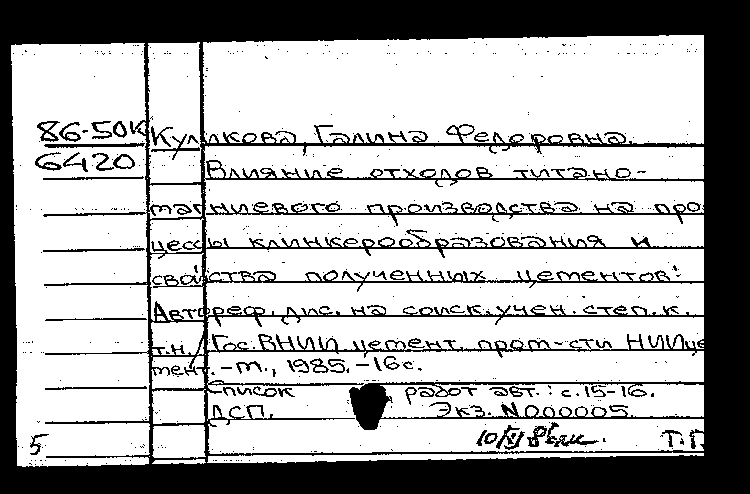 86-50К Куликова, Галина Федоровна.
6420 Влияние отходов титано-
магниевого производства на про
цессы клинкерообразования и
свойства полученных цементов:
Автореф. дис. на соиск. учен. степ. к.
т.н./ Гос. ВНИИ цемент. пром-сти НИИце
мент. -м., 1985. -16с.
Список работ авт.: с.15-16.
ДСП. Экз. N000005.
5